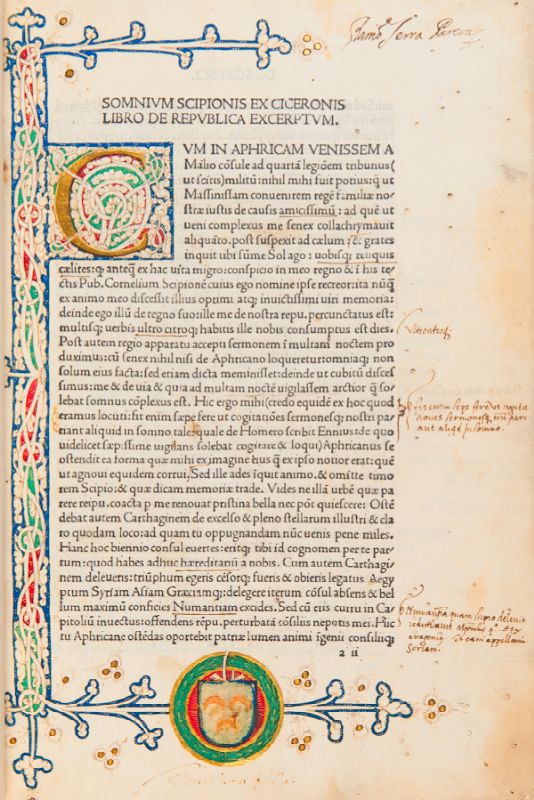 SOMNIVM SCIPIONIS EX CICERONIS
LIBRO DE REPVBLICA EXCERPTVM.
CVM IN APHRICAM VENISSEM A
Malio cōsule ad quartā legiōem tribunus(
ut scitis)militū:nihil mihi fuit potius:q̄ ut
Massinissam convenirem regē familiæ no-
stræ iustis de causis amicissimū: ad quē ut
ueni complexus me senex collachrymauit
aliquāto.post suspexit ad cælum :& grates
inquit tibi sūme Sol ago : uobisq; reliquis
cælites:q; anteq̄ ex hac uita migro:conspicio in meo regno & ī his te/
ctis Pub. Cornelium Scipionē cuius ego nomine ipse recreor:ita nūq̄
ex animo meo discessit illius optimi atq; inuictissimi uiri memoria:
deinde ego illū de regno suo:ille me de nostra repu. percunctatus est:
multisq; uerbis ultro citroq; habitis ille nobis consumptus est dies.
Post autem regio apparatu accepti sermonem ī multam noctem pro
duximus:cū senex nihil nisi de Aphricano loqueretur:omniaq; non
solum eius facta:sed etiam dicta meminisset:deinde ut cubitū disces
simus:me & de uia & qui ad multam noctē uigilassem arctior q̄ so/
lebat somnus cōplexus est. Hic ergo mihi(credo equidē ex hoc quod
eramus locuti:fit enim sæpe fere ut cogitatiōes sermonesq; nostri pa/
riant aliquid in somno tale:quale de Homero scribit Ennius:de quo
uidelicet sæpissime uigilans solebat cogitare & loqui)Aphricanus se
ostendit ea forma quæ mihi ex imagine eius q̄ ex ipso notior erat:quē
ut agnoui equidem corrui. Sed ille ades īquit animo.& omitte timo
rem Scipio:& quæ dicam memoriæ trade. Vides ne illā urbē quæ pa
rere reipu.coacta p me renouat pristina bella nec pōt quiescere: Ostē
debat autem Carthaginem de excelso & pleno stellarum illustri & cla
ro quodam loco:ad quam tu oppugnandam nūc uenis pene miles.
Hanc hoc biennio consul euertes:eritq; tibi id cognomen per te par
tum:quod habes adhuc hæreditariū a nobis. Cum autem Carthagi
nem deleueris:triūphum egeris cēsorq; fueris & obieris legatus Aegy
ptum Syriam Asiam Græciamq;:delegere iterum cōsul absens & bel
lum maximū conficies Numantiam excides. Sed cū eris curru in Ca
pitoliū inuectus:offendens rēpu. perturbatā cōsiliis nepotis mei. Hic
tu Aphricane ostēdas oportebit patriæ lumen animi īgenii consiliiq;
2 ii